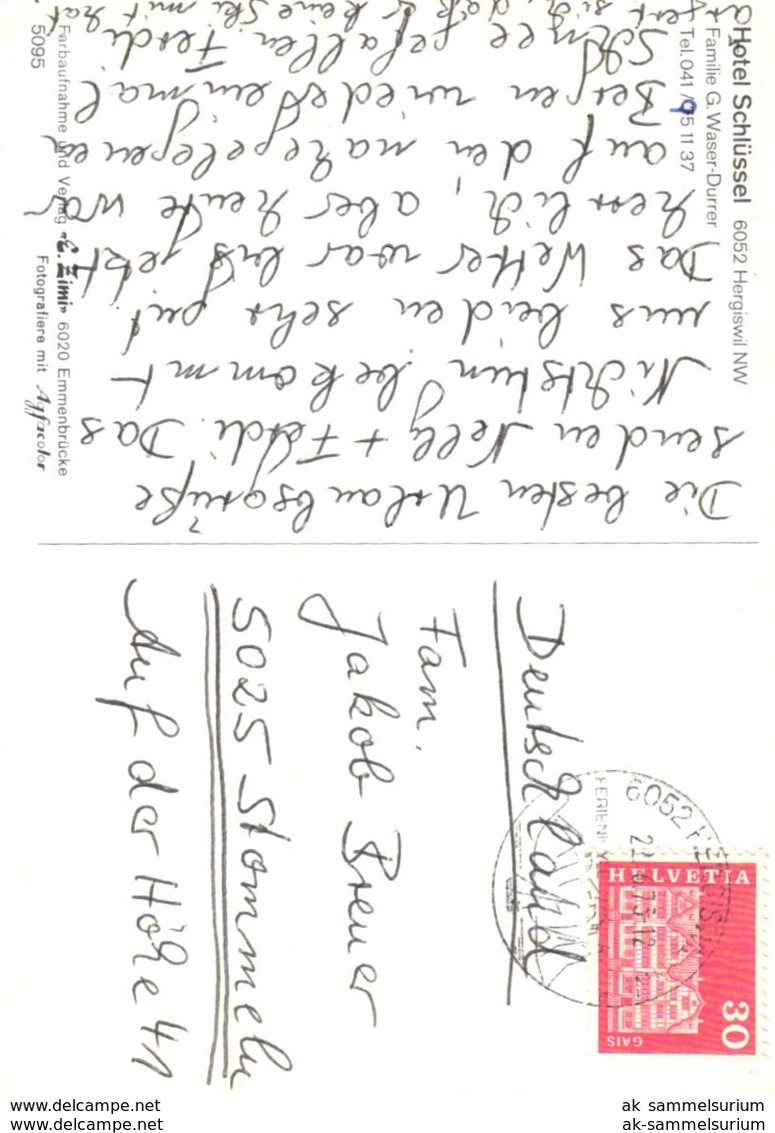 Hotel Schlüssel 6052 Hergiswil NW
Familie G. Waser-Durrer
Tel. 041 / 95 11 37
Die besten Urlaubsgrüße
senden Nelly + Ferdi. Das
Nichtstun bekommt
uns beiden sehr gut
Das Wetter war bis jetzt
herrlich, aber heute war
auf den nahegelegenen
Bergen wieder einmal
Schnee gefallen Ferdi
ärgert sich, daß er keine Ski mit hat.
Farbaufnahme und Verlag «E. Zimi» 6020 Emmenbrücke
5095
Fotografiere mit Agfacolor
Deutschland
Fam.
Jakob Breuer
5025 Stommeln
Auf der Höhe 41
6052 HERGISWIL
HELVETIA
30
GAIS
ak-sammelsurium.com
ak-sammelsurium.com
ak-sammelsurium
ak-sammelsurium